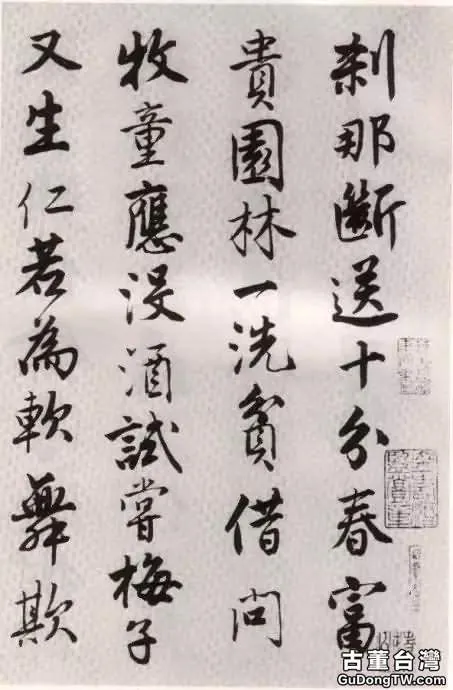 刹那斷送十分春富
貴園林一洗貧借問
牧童應没酒試嘗梅子
又生仁若為軟舞欺
古董台灣
GuDongTW.com